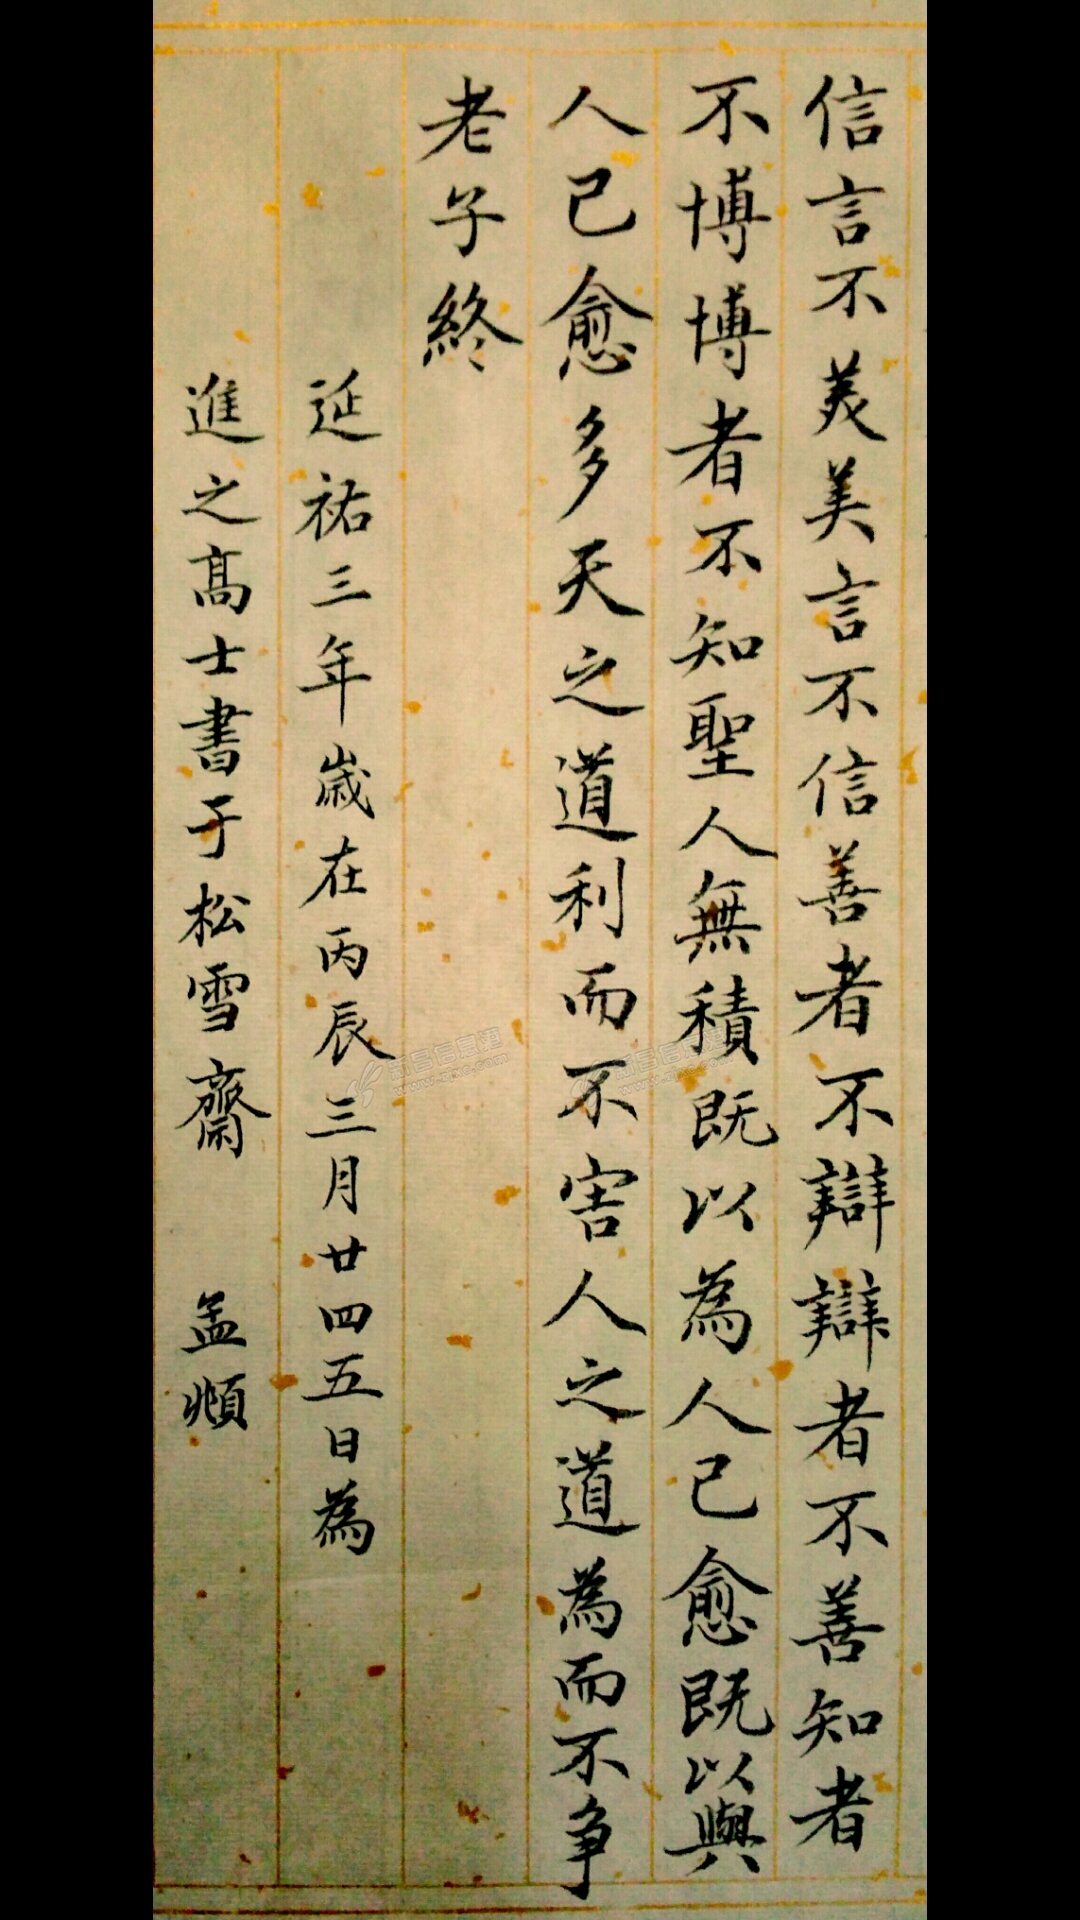 信言不美美言不信善者不辯辯者不善知者
不博博者不知聖人無積既以為人己愈既以與
人己愈多天之道利而不害人之道為而不争
老子終
延祐三年歲在丙辰三月廿四五日為
進之高士書于松雪齋 孟頫
www.znc.com